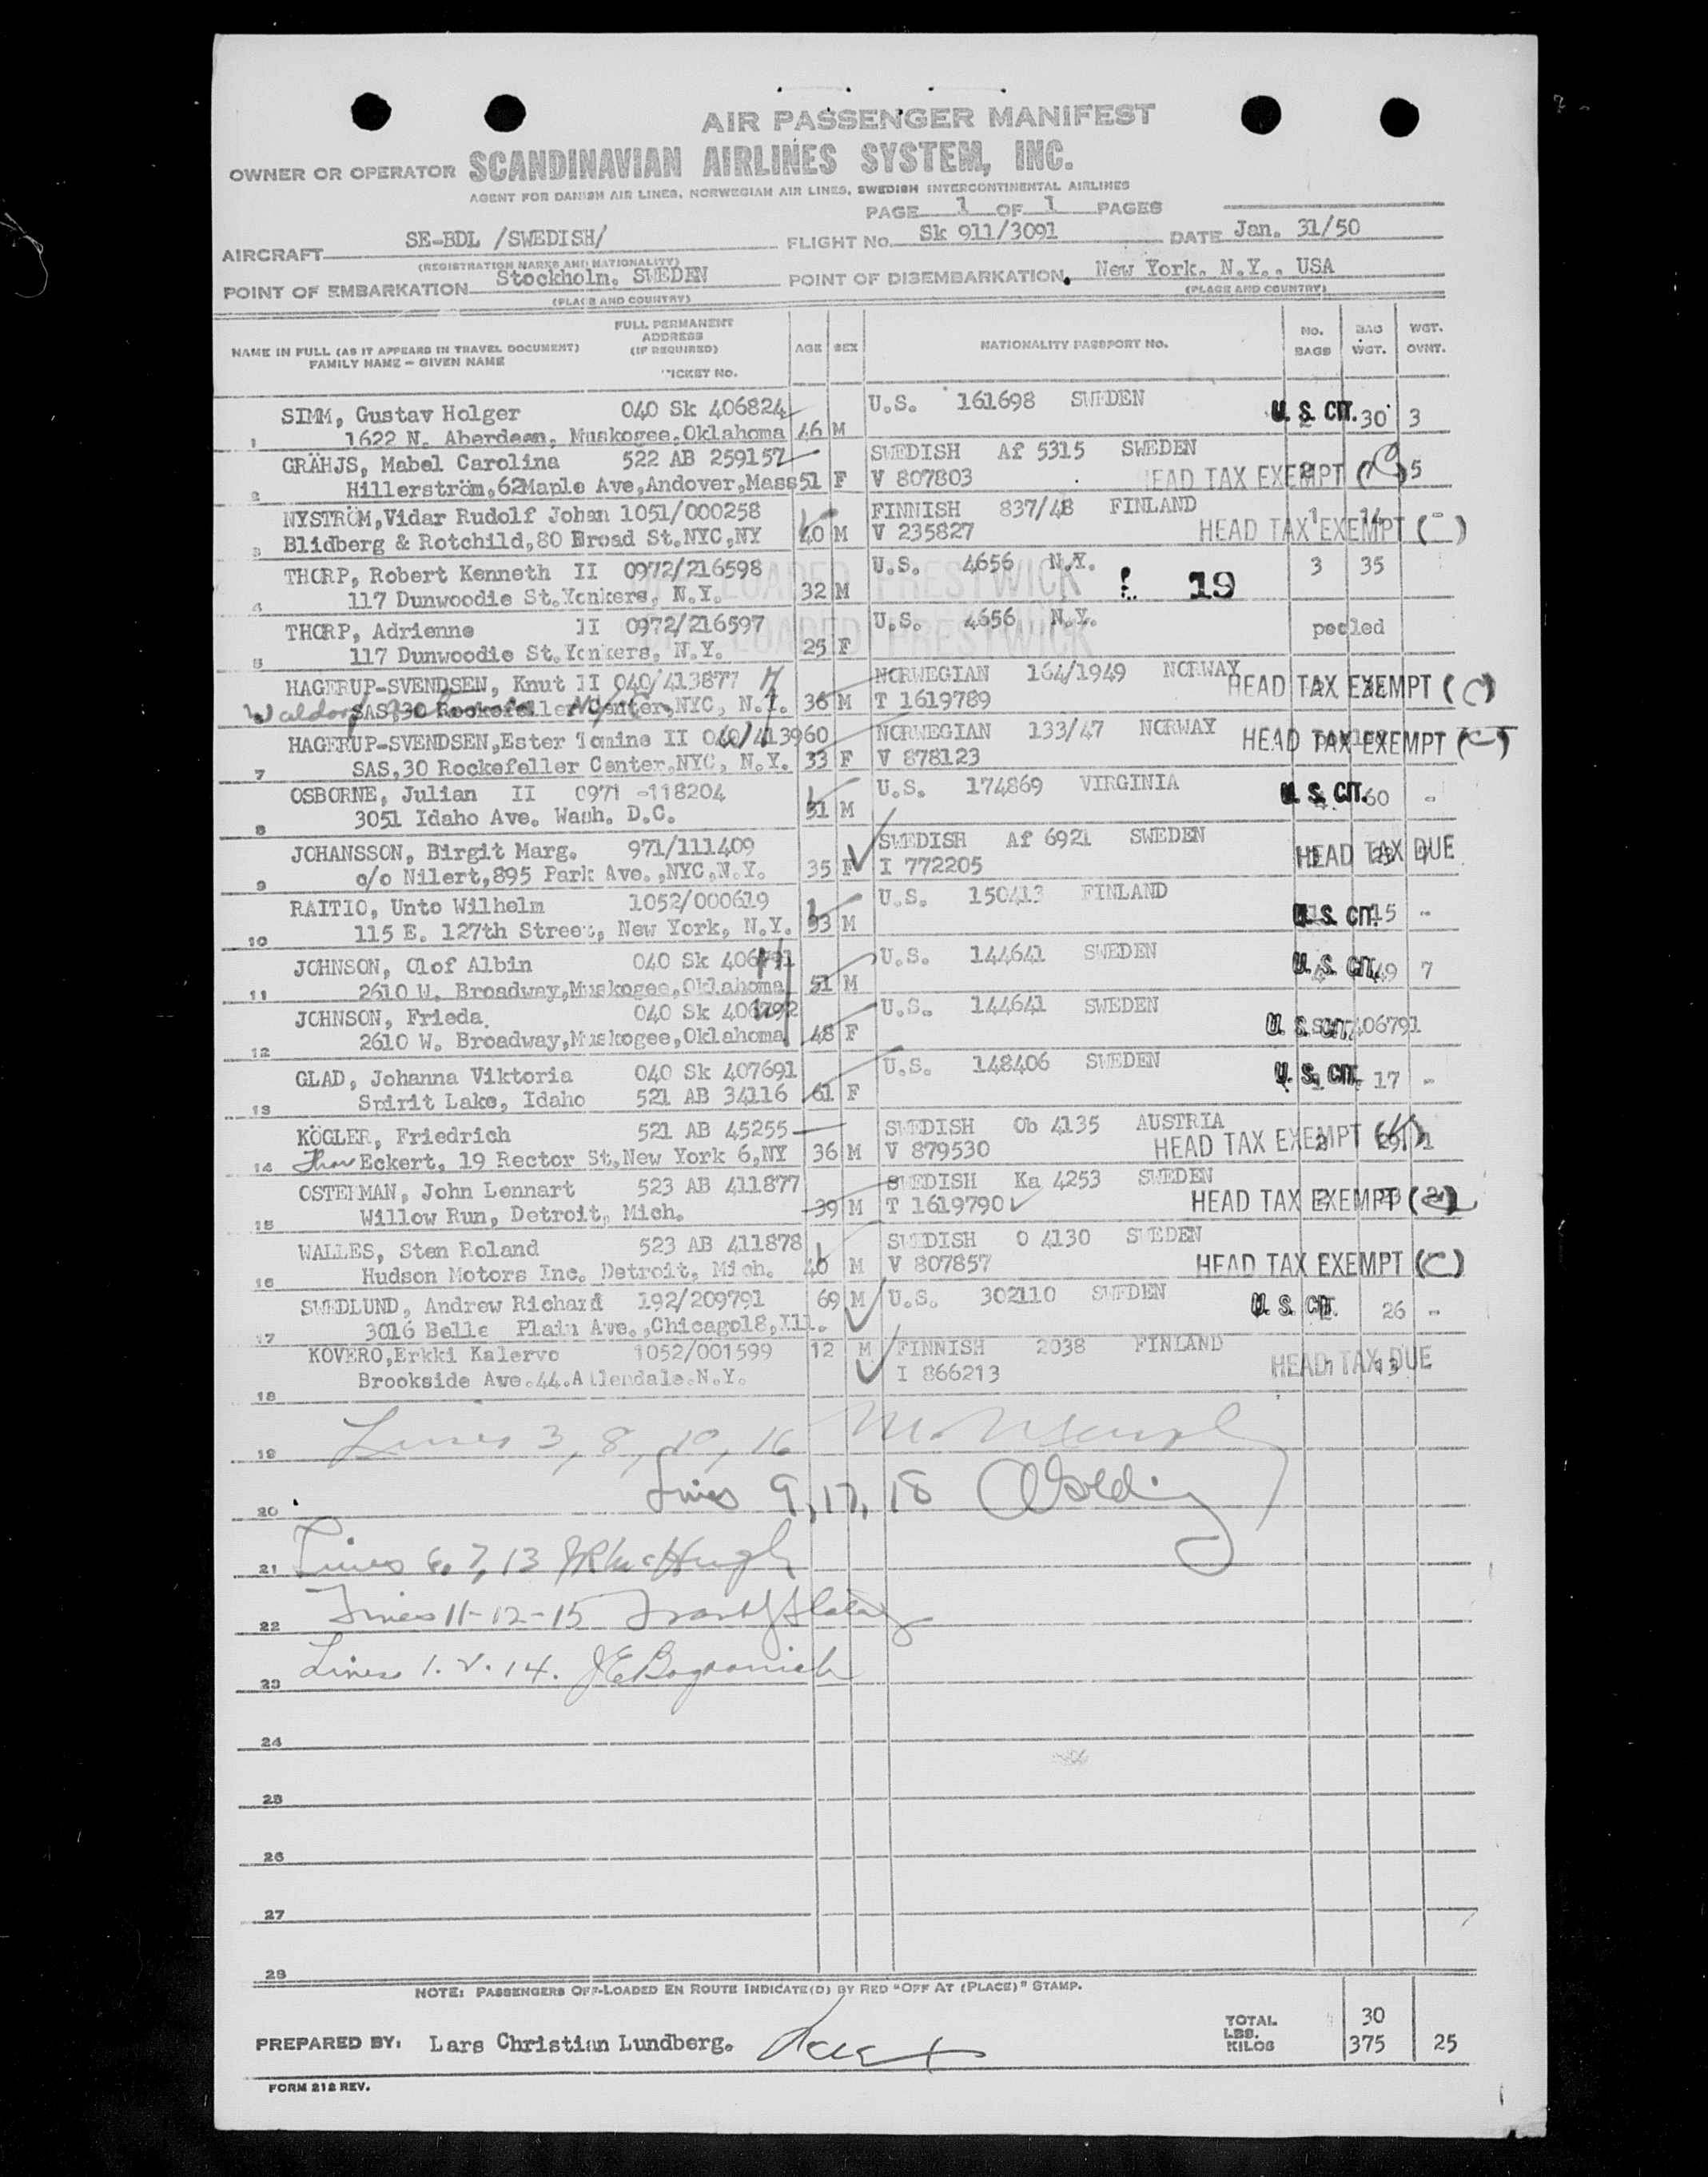 AIR PASSENGER MANIFEST
OWNER OR OPERATOR SCANDINAVIAN AIRLINES SYSTEM, INC.
AGENT FOR DANISH AIR LINES, NORWEGIAN AIR LINES, SWEDISH INTERCONTINENTAL AIRLINES
PAGE 1 OF 1 PAGES
AIRCRAFT SE-BDL /SWEDISH/ FLIGHT No. Sk 911/3091 DATE Jan. 31/50
(REGISTRATION MARKS AND NATIONALITY)
POINT OF EMBARKATION Stockholm. SWEDEN POINT OF DISEMBARKATION New York. N.Y.. USA
(PLACE AND COUNTRY) (PLACE AND COUNTRY)
NAME IN FULL (AS IT APPEARS IN TRAVEL DOCUMENT) FAMILY NAME – GIVEN NAME FULL PERMANENT ADDRESS (IF REQUIRED) TICKET No. AGE SEX NATIONALITY PASSPORT No. No. BAGS BAG WGT. WGT. OVNT.
SIMM, Gustav Holger 040 Sk 406824 U.S. 161698 SWEDEN U.S. CIT. 30 3
1 1622 N. Aberdeen, Muskogee,Oklahoma 46 M
GRÄHJS, Mabel Carolina 522 AB 259157 SWEDISH Af 5315 SWEDEN
2 Hillerström,62Maple Ave,Andover,Mass 51 F V 807803 HEAD TAX EXEMPT (C) 5
NYSTRÖM,Vidar Rudolf Johan 1051/000258 FINNISH 837/48 FINLAND 1 14 -
3 Blidberg & Rotchild,80 Broad St.NYC,NY 40 M V 235827 HEAD TAX EXEMPT (-)
THORP, Robert Kenneth II 0972/216598 U.S. 4656 N.Y. 3 35
4 117 Dunwoodie St.Yonkers, N.Y. 32 M LOADED PRESTWICK 19
THORP, Adrienne II 0972/216597 U.S. 4656 N.Y. pooled
5 117 Dunwoodie St.Yonkers, N.Y. 25 F LOADED PRESTWICK
HAGERUP-SVENDSEN, Knut II 040/413877 NORWEGIAN 164/1949 NORWAY
Waldorf SAS,30 Rockefeller Center,NYC, N.Y. 36 M T 1619789 HEAD TAX EXEMPT (C)
HAGERUP-SVENDSEN,Ester Tomine II 040/413960 NORWEGIAN 133/47 NORWAY HEAD TAX EXEMPT (C)
7 SAS,30 Rockefeller Center,NYC, N.Y. 33 F V 878123
OSBORNE, Julian II 0971 -118204 U.S. 174869 VIRGINIA U.S. CIT. 60 -
8 3051 Idaho Ave. Wash. D.C. 51 M
JOHANSSON, Birgit Marg. 971/111409 SWEDISH Af 6921 SWEDEN HEAD TAX DUE
9 c/o Nilert,895 Park Ave.,NYC,N.Y. 35 F I 772205
RAITIO, Unto Wilhelm 1052/000619 U.S. 150413 FINLAND U.S. CIT. 15 -
10 115 E. 127th Street, New York, N.Y. 53 M
JOHNSON, Olof Albin 040 Sk 406791 U.S. 144641 SWEDEN U.S. CIT. 49 7
11 2610 W. Broadway,Muskogee,Oklahoma 51 M
JOHNSON, Frieda. 040 Sk 406792 U.S. 144641 SWEDEN U.S. CIT. 406791
12 2610 W. Broadway,Muskogee,Oklahoma 48 F
GLAD, Johanna Viktoria 040 Sk 407691 U.S. 148406 SWEDEN U.S. CIT. 17 -
13 Spirit Lake, Idaho 521 AB 34116 61 F
KÖGLER, Friedrich 521 AB 45255 SWEDISH Ob 4135 AUSTRIA
14 Eckert, 19 Rector St,New York 6,NY 36 M V 879530 HEAD TAX EXEMPT
OSTERMAN, John Lennart 523 AB 411877 SWEDISH Ka 4253 SWEDEN
15 Willow Run, Detroit, Mich. 39 M T 1619790 HEAD TAX EXEMPT
WALLES, Sten Roland 523 AB 411878 SWEDISH O 4130 SWEDEN
16 Hudson Motors Inc. Detroit, Mich. 40 M V 807857 HEAD TAX EXEMPT (C)
SWEDLUND, Andrew Richard 192/209791 69 M U.S. 302110 SWEDEN U.S. CIT. 26 -
17 3016 Belle Plain Ave.,Chicago18,Ill.
KOVERO,Erkki Kalervo 1052/001599 12 M FINNISH 2038 FINLAND
18 Brookside Ave.44.Allendale.N.Y. I 866213 HEAD TAX DUE
19 Lines 3, 8, 10, 16
20 Lines 9, 17, 18
21 Lines 6, 7, 13 McHugh
22 Lines 11-12-15
23 Lines 1. 2. 14.
24
25
26
27
28
NOTE: PASSENGERS OFF-LOADED EN ROUTE INDICATE(D) BY RED "OFF AT (PLACE)" STAMP.
PREPARED BY: Lars Christian Lundberg. TOTAL LBS. KILOS 30 375 25
FORM 212 REV.